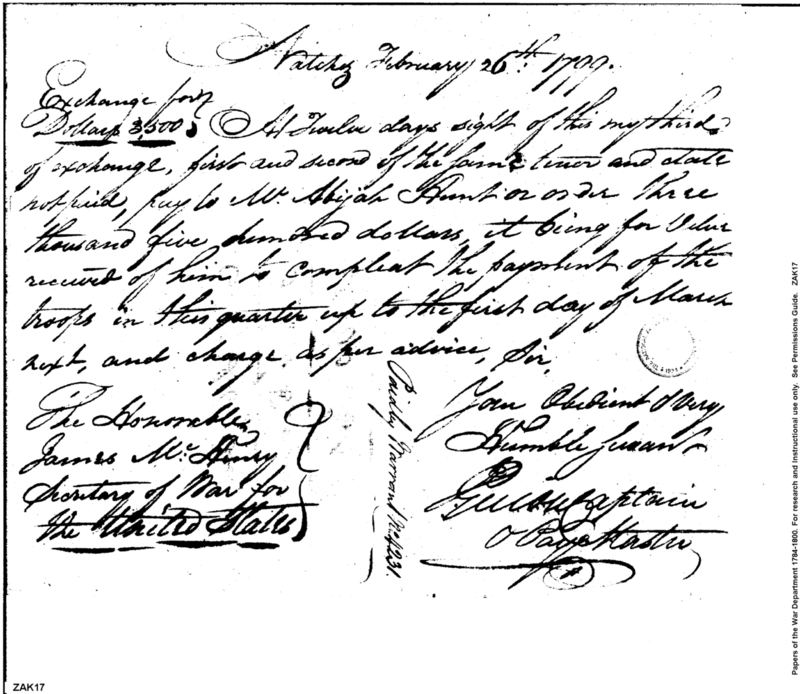 Natchez February 26th. 1799.
Exchange for
Dollars 3,500
At Twelve days sight of this my third
of exchange, first and second of the same tenor and date
not paid, pay to Mr. Abijah Hunt or order three
thousand five hundred dollars, it being for Value
received of him to compleat the payment of the
troops in this quarter up to the first day of March
next, and charge, as per advice, Sir,
Your Obedient & Very
Humble Servant
Captain
& Pay Master
The Honorable
James McHenry
Secretary of War for
the United States
Paid by Warrant No. 4231.
ZAK17
Papers of the War Department 1784-1800. For research and instructional use only. See Permissions Guide. ZAK17